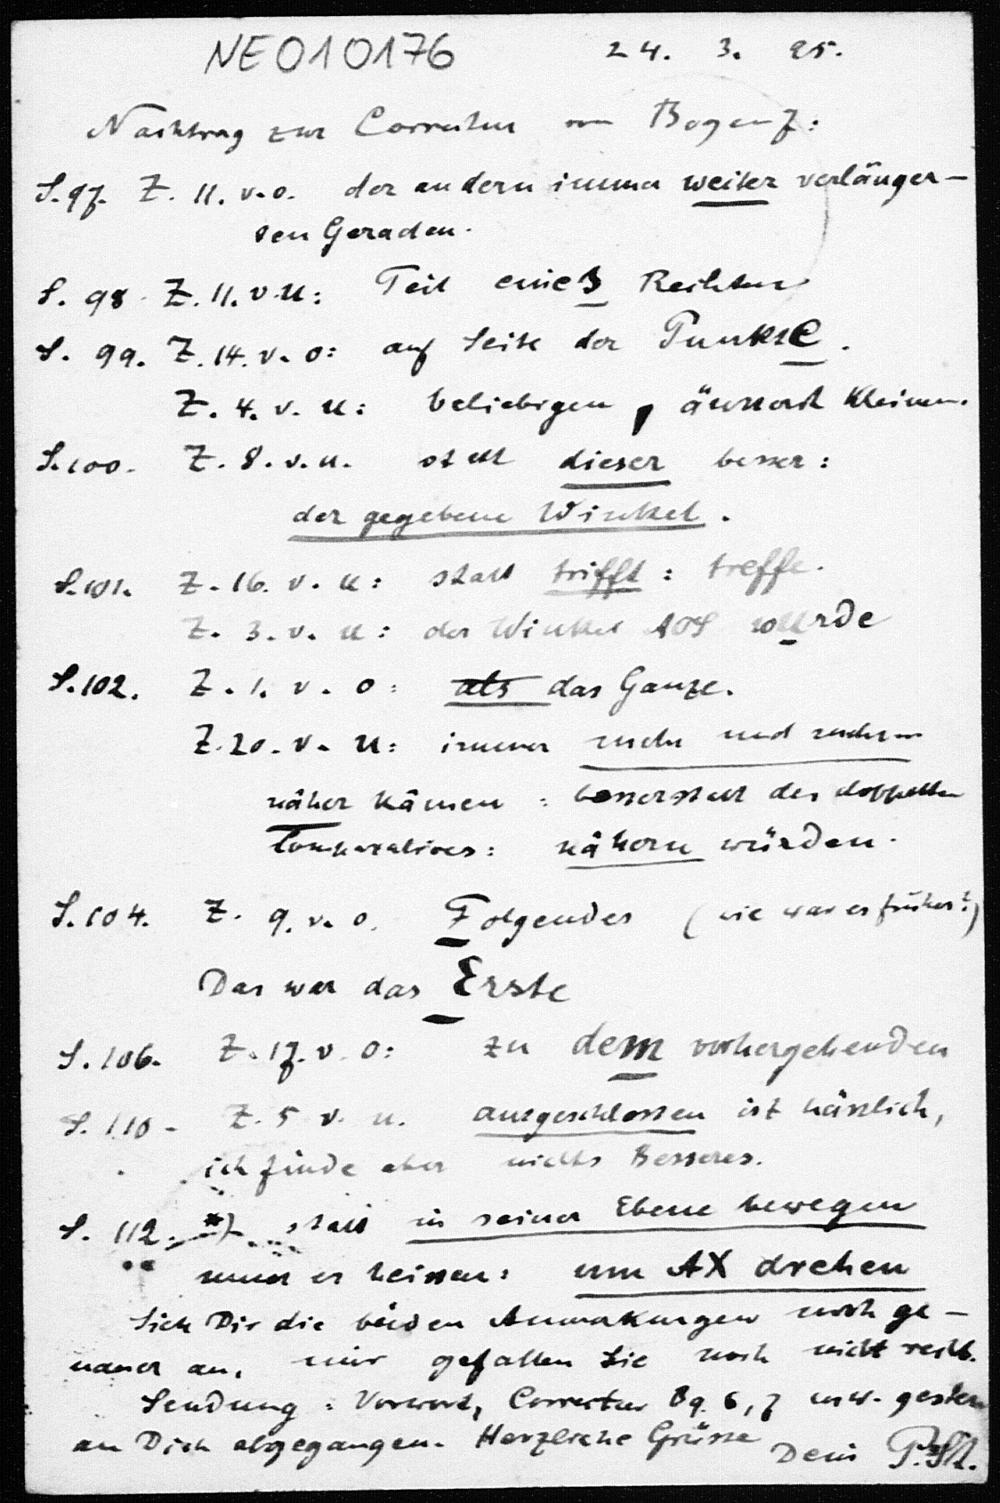 NE010176
24. 3. 25.
Nachtrag zur Correctur von Bogen 7:
S. 97. Z. 11. v. o. der andern immer weiter verlänger-
ten Geraden.
S. 98 Z. 11. v. u: Teil eines Rechten
S. 99. Z. 14. v. o: auf Seite der Punkte.
Z. 4. v. u: beliebigen, äusserst kleinen.
S. 100. Z. 8. v. u. statt dieser besser:
der gegebene Winkel.
S. 101. Z. 16. v. u: statt trifft: treffe.
Z. 3. v. u: der Winkel wurde
S. 102. Z. 1. v. o: als das Ganze.
Z. 20. v. u: immer mehr und mehr
näher kämen: besser statt des doppelten
Comparatives: nähern würden.
S. 104. Z. 9. v. o. Folgendes (wie war es früher?)
Das war das Erste
S. 106. Z. 17. v. o: zu dem vorhergehenden
S. 110 - Z. 5 v. u. ausgeschlossen ist hässlich,
ich finde aber nichts Besseres.
S. 112. *) statt in seiner Ebene bewegen
muss es heissen: um AX drehen
Sieh Dir die beiden Anmerkungen noch ge-
nauer an, mir gefallen sie noch nicht recht.
Sendung: Vorwort, Correctur Bg. 6, 7 usw. gestern
an Dich abgegangen. Herzliche Grüsse
Dein P. St.